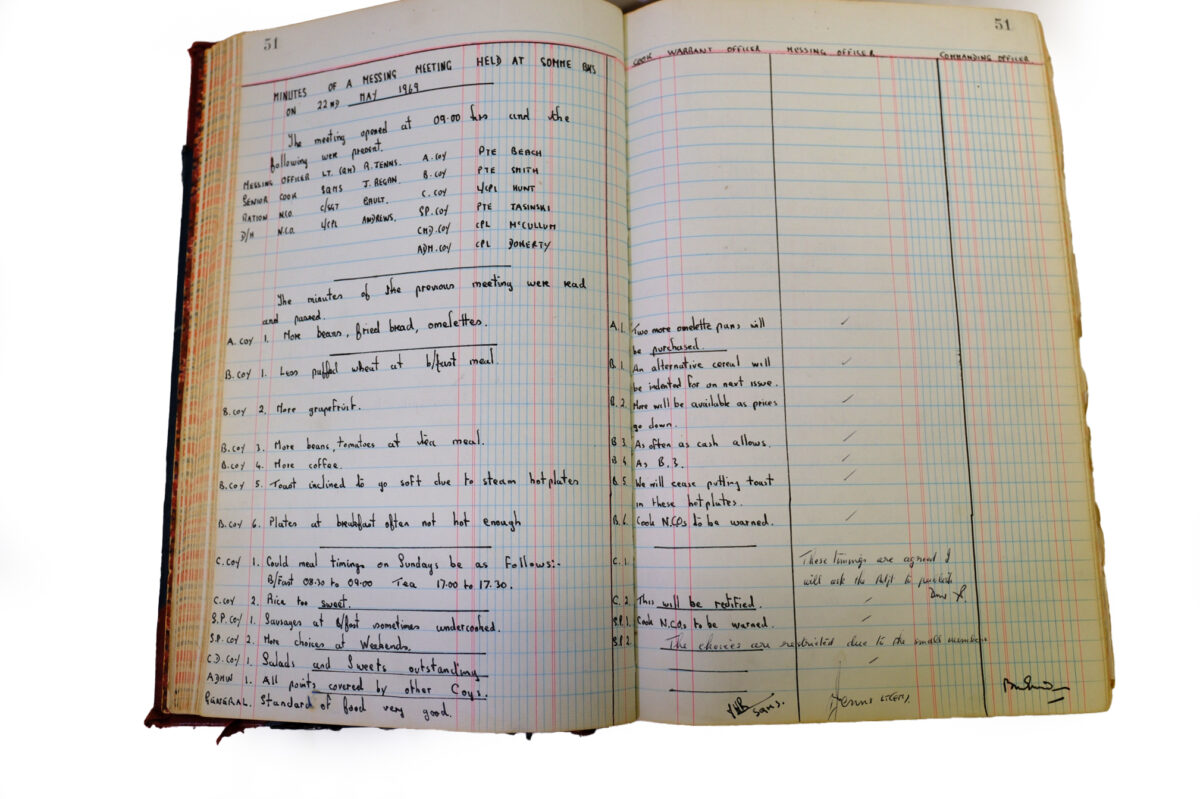 51
MINUTES OF A MESSING MEETING HELD AT SOMME BKS
ON 22ND MAY 1969
The meeting opened at 09.00 hrs and the
following were present.
MESSING OFFICER LT. (QM) R. JENNS. A. COY PTE BEACH
SENIOR COOK SQMS J. REGAN. B. COY PTE SMITH
RATION N.CO. C/SGT BAULT. C. COY L/CPL HUNT
D/H N.CO. L/CPL ANDREWS. SP. COY PTE JASINSKI
CMD. COY CPL McCULLUM
ADM. COY CPL DOHERTY
The minutes of the previous meeting were read
and passed.
A. COY 1. More beans, fried bread, omelettes.
B. COY 1. Less puffed wheat at b/fast meal.
B. COY 2. More grapefruit.
B. COY 3. More beans, tomatoes at tea meal.
B. COY 4. More coffee.
B. COY 5. Toast inclined to go soft due to steam hotplates
B. COY 6. Plates at breakfast often not hot enough
C. COY 1. Could meal timings on Sundays be as Follows:-
B/Fast 08.30 to 09.00 Tea 17.00 to 17.30.
C. COY 2. Rice too sweet.
S.P. COY 1. Sausages at b/fast sometimes undercooked.
S.P. COY 2. More choices at Weekends.
C.D. COY 1. Salads and Sweets outstanding
ADMIN 1. All points covered by other Coys.
GENERAL. Standard of food very good.
51
COOK WARRANT OFFICER MESSING OFFICER COMMANDING OFFICER
A.1. Two more omelette pans will
be purchased.
B.1. An alternative cereal will
be indented for on next issue.
B.2. More will be available as prices
go down.
B.3. As often as cash allows.
B.4. As B.3.
B.5. We will cease putting toast
in these hotplates.
B.6. Cook N.C.Os to be warned.
C.1. These timings are agreed I
will ask the to
C.2. This will be rectified.
S.P.1. Cook N.C.Os to be warned.
S.P.2. The choices are restricted due to the small numbers
SQMS. Jenns